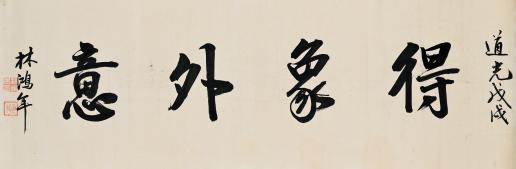 道光戊戌
得象外意
林鴻年